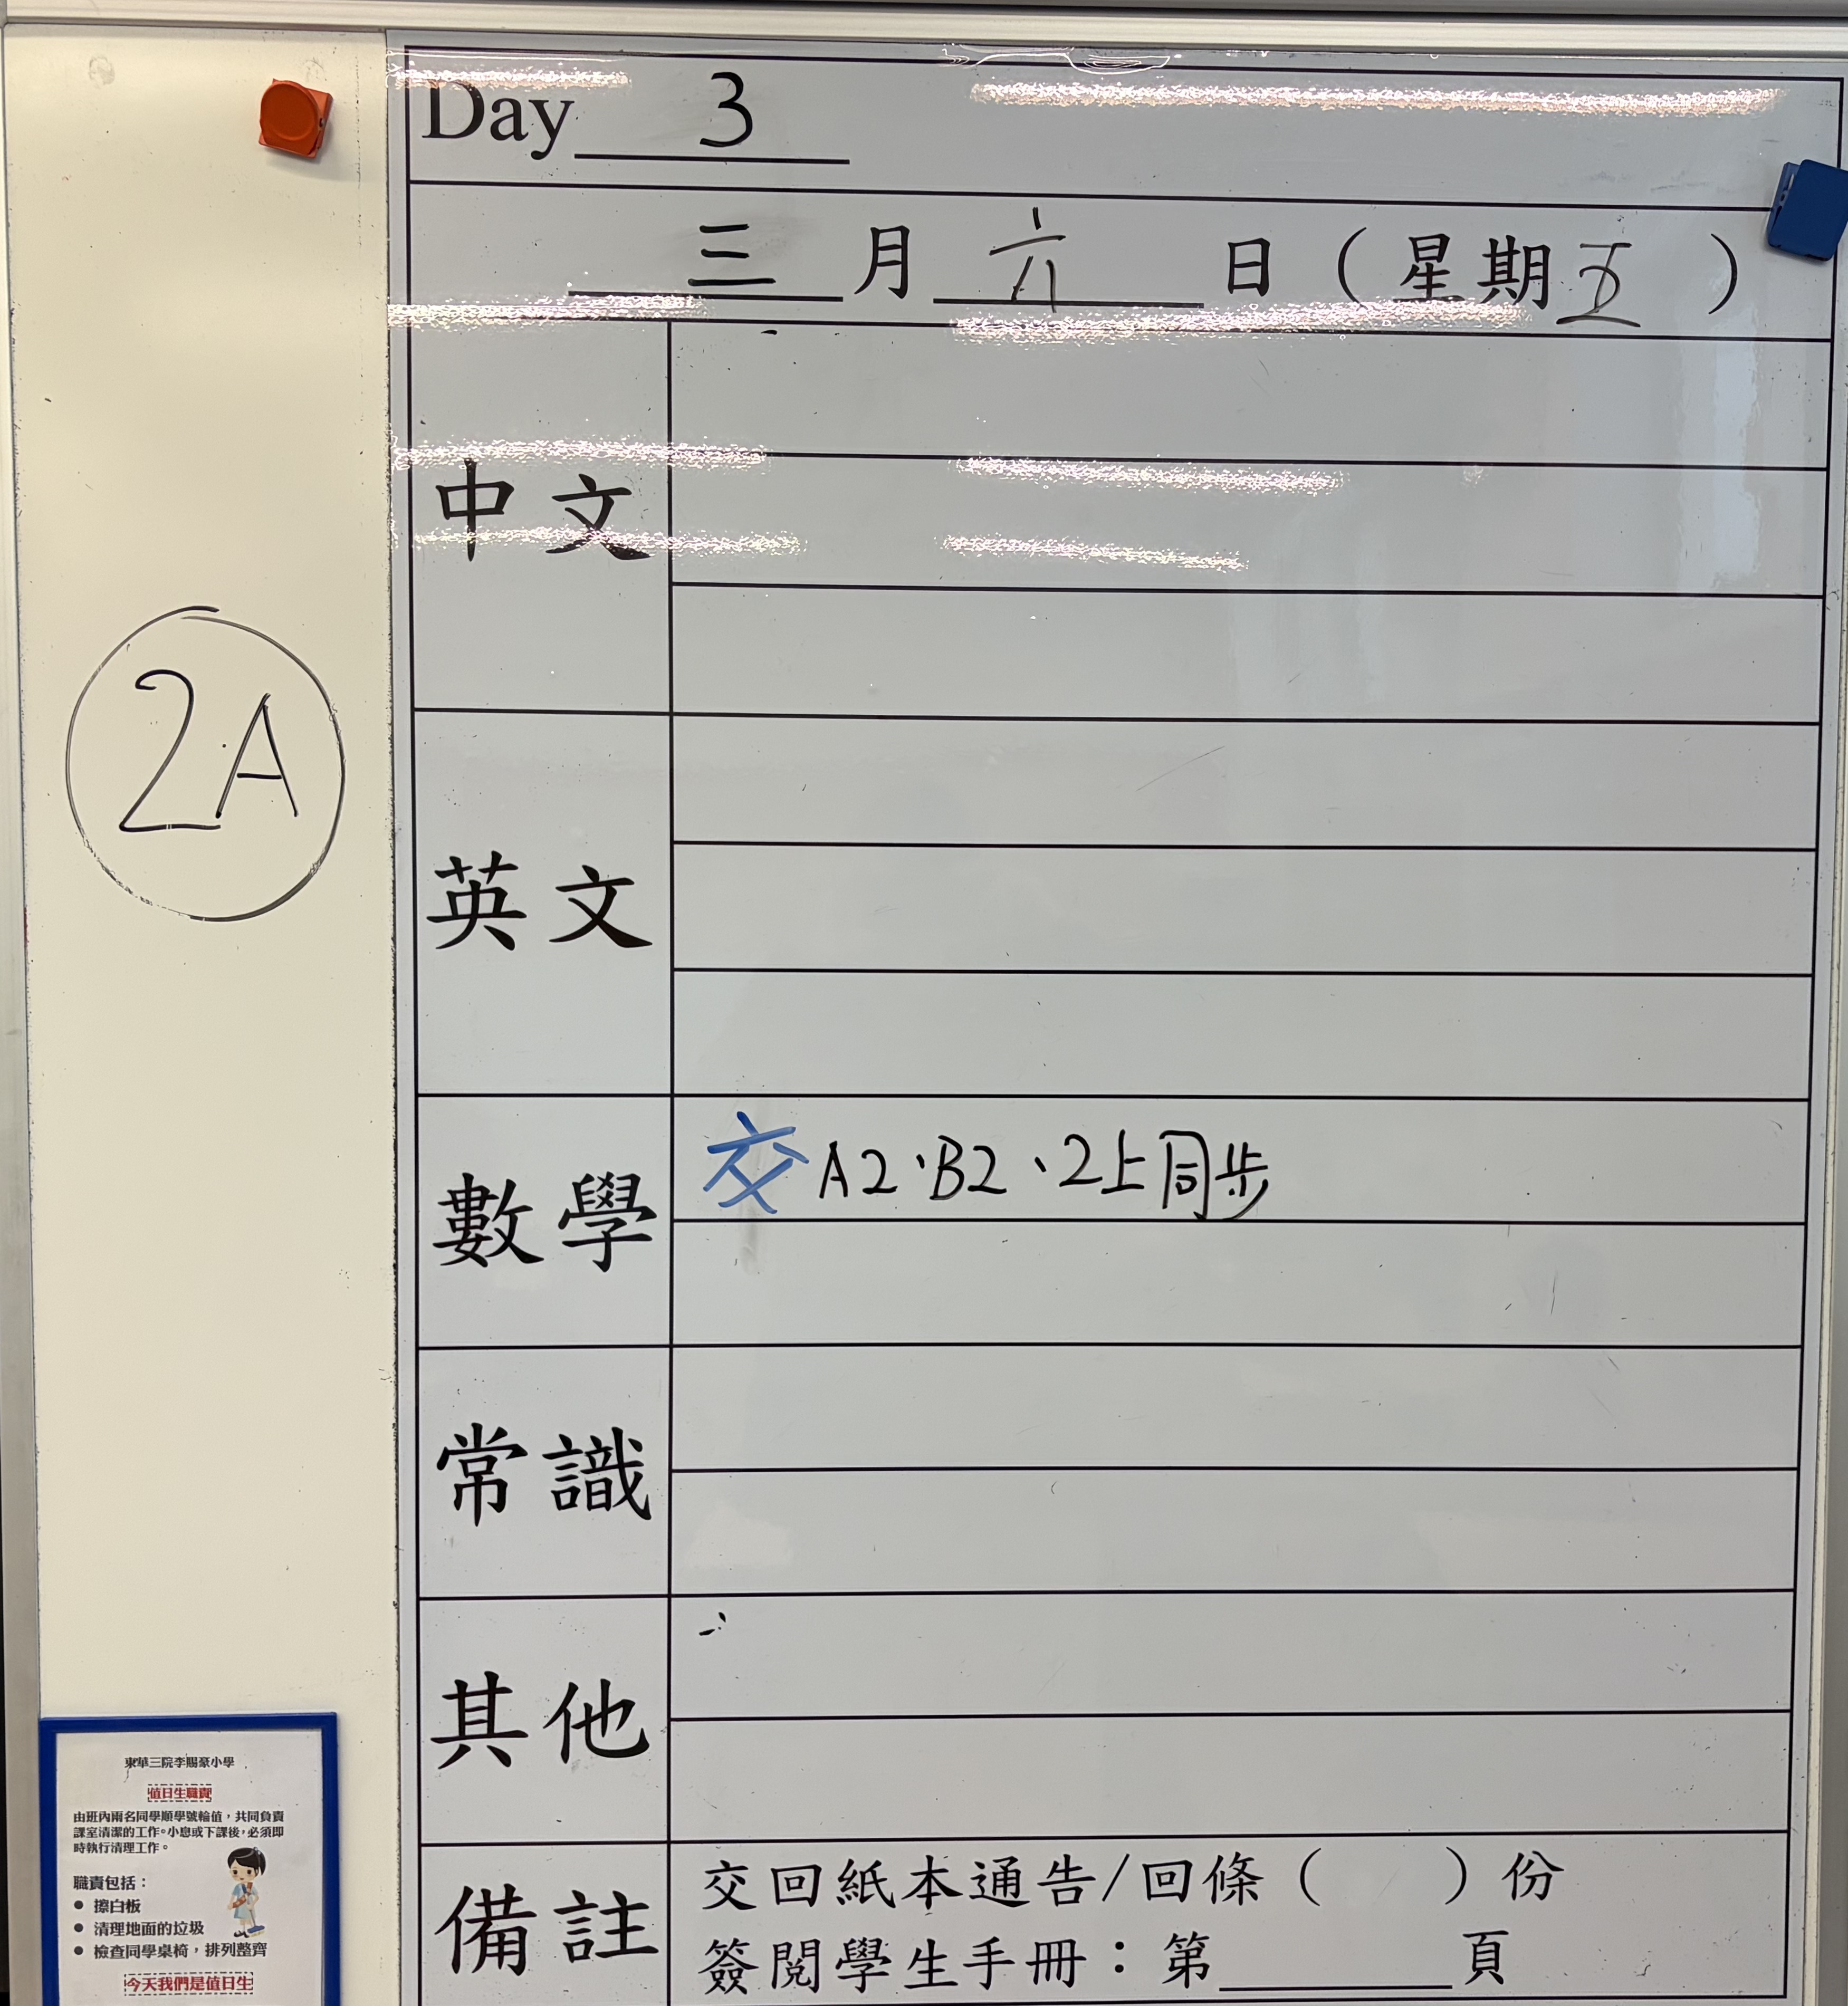 Day 3
三 月 六 日 ( 星期五 )
中文
2A
英文
數學
交 A2、B2、2上同步
常識
其他
備註
交回紙本通告/回條 (　　) 份
簽閱學生手冊：第 頁
東華三院李賜豪小學
值日生職責
由班內兩名同學順學號輪值，共同負責
課室清潔的工作。小息或下課後，必須即
時執行清理工作。
職責包括：
● 擦白板
● 清理地面的垃圾
● 檢查同學桌椅，排列整齊
今天我們是值日生